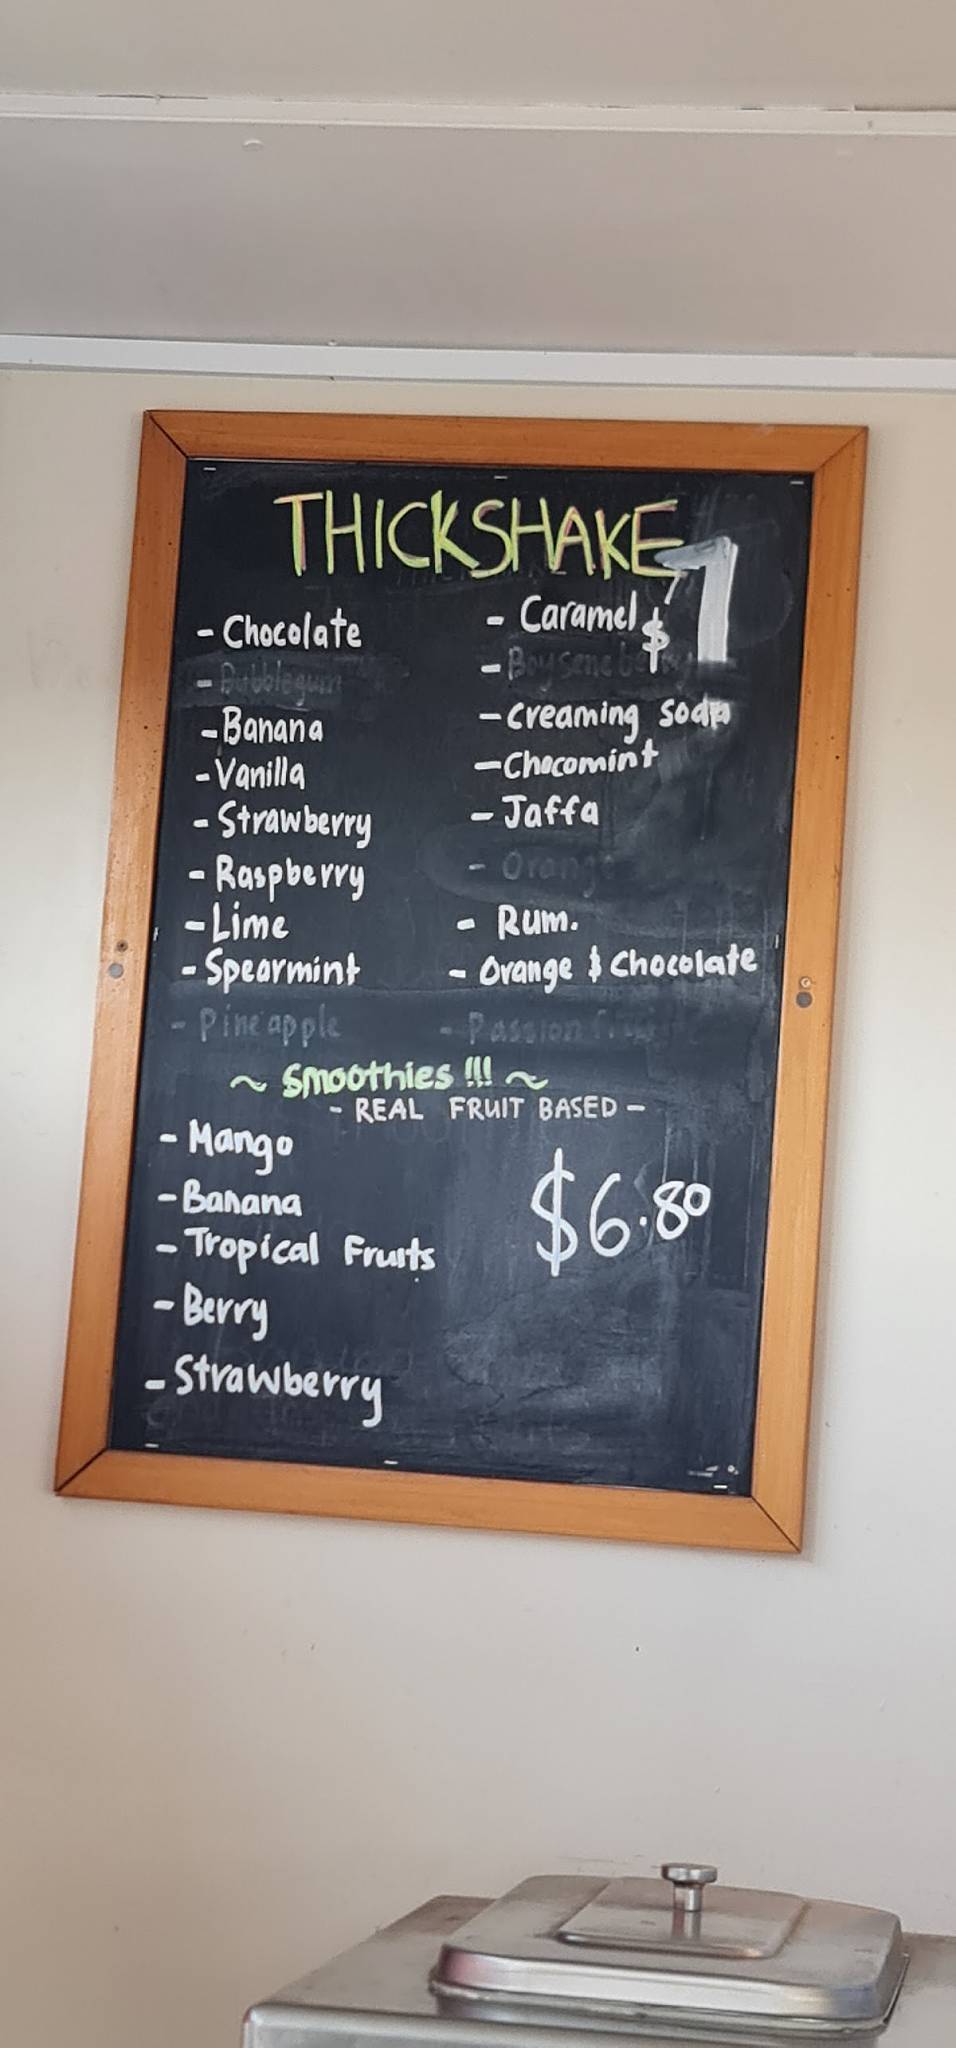 THICKSHAKE
- Chocolate
- Bubblegum
- Banana
- Vanilla
- Strawberry
- Raspberry
- Lime
- Spearmint
- Pineapple
- Caramel
$7
- Boysenberry
- Creaming soda
- Chocomint
- Jaffa
- Orange
- Rum.
- Orange & Chocolate
- Passionfruit
~ Smoothies !!! ~
- REAL FRUIT BASED -
- Mango
- Banana
- Tropical Fruits
- Berry
- Strawberry
$6.80